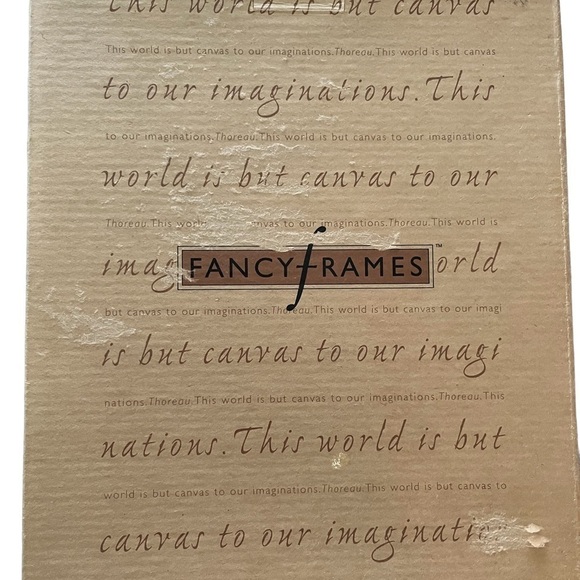 This world is but canvas
This world is but canvas to our imaginations.Thoreau.This world is but canvas
to our imaginations.This
to our imaginations.Thoreau.This world is but canvas to our imaginations.
world is but canvas to our
Thoreau.This world canvas to our imaginations.Thoreau.This world is
imag FANCY fRAMES™ orld
but canvas to our imaginations.Thoreau.This world is but canvas to our imagi
is but canvas to our imagi
nations.Thoreau.This world is but canvas to our imaginations.Thoreau.This
nations.This world is but
world is but canvas to our imaginations.Thoreau.This world is but canvas to
canvas to our imaginatio